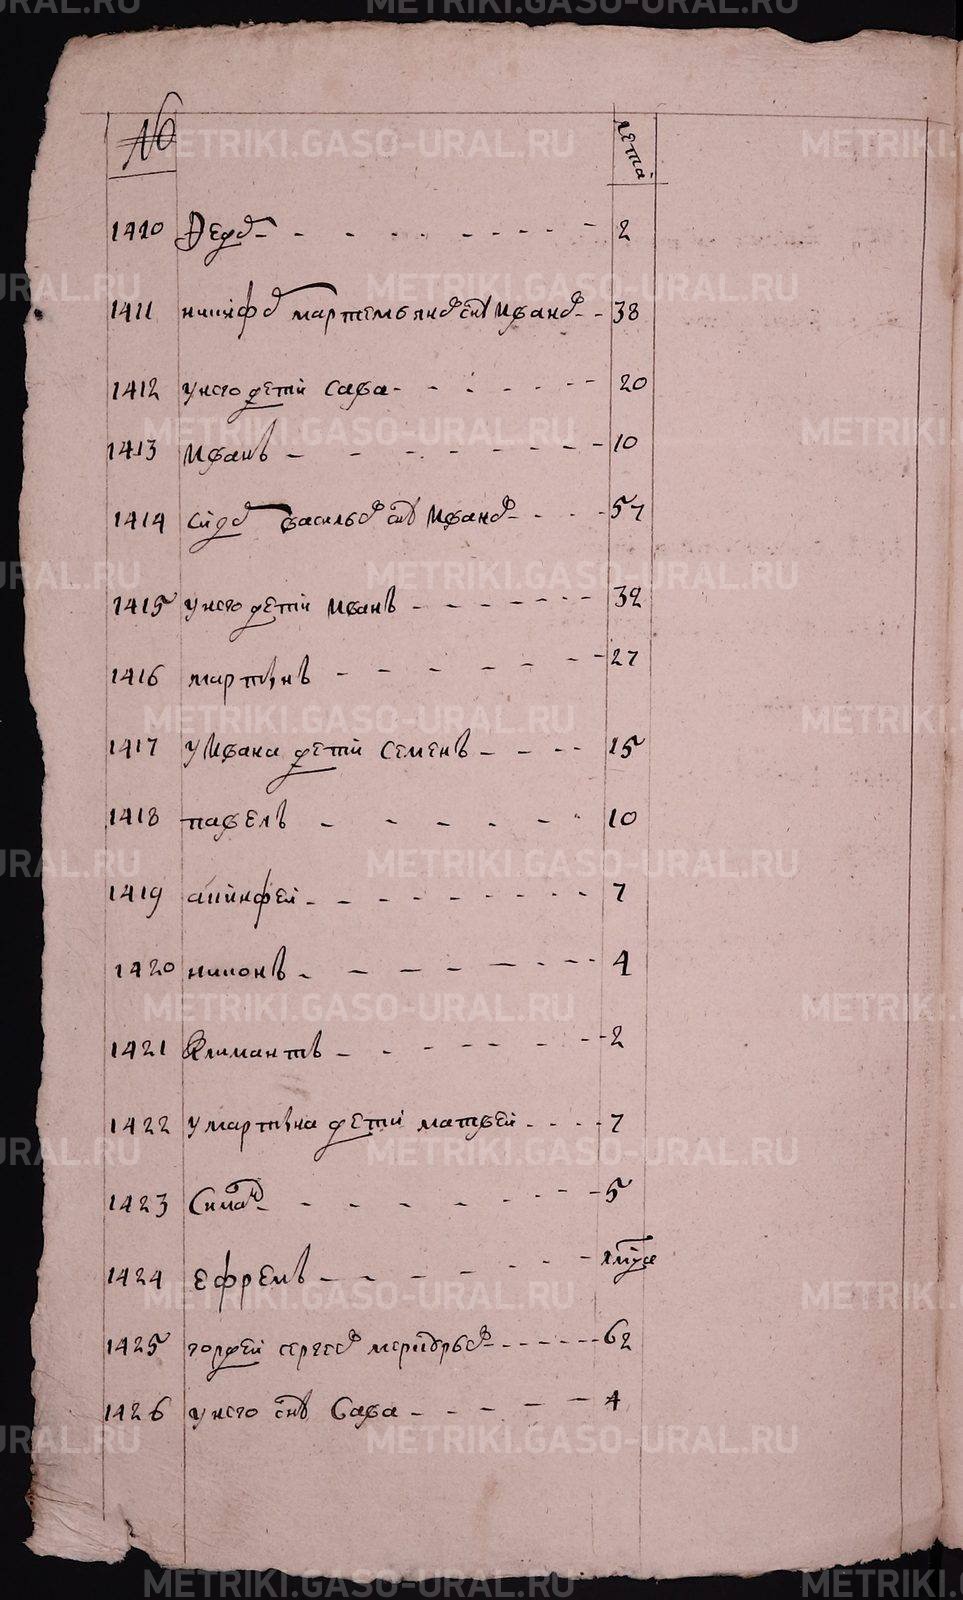 № лета
1410 Федор 2
1411 никифор мартемьянов снъ Иванов 38
1412 у него детей Сава 20
1413 Иванъ 10
1414 Сидор васильев снъ Иванов 57
1415 у него детей Иванъ 32
1416 мартынъ 27
1417 у Ивана детей Семенъ 15
1418 павелъ 10
1419 акинфей 7
1420 никонъ 4
1421 Климантъ 2
1422 у мартына детей матвей 7
1423 5
1424 Ефремъ
1425 гордей сергеев 62
1426 у него снъ Сава 4
METRIKI.GASO-URAL.RU